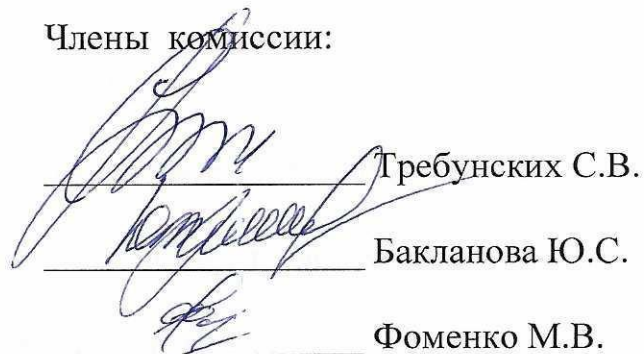 Члены комиссии:
Требунских С.В.
Бакланова Ю.С.
Фоменко М.В.